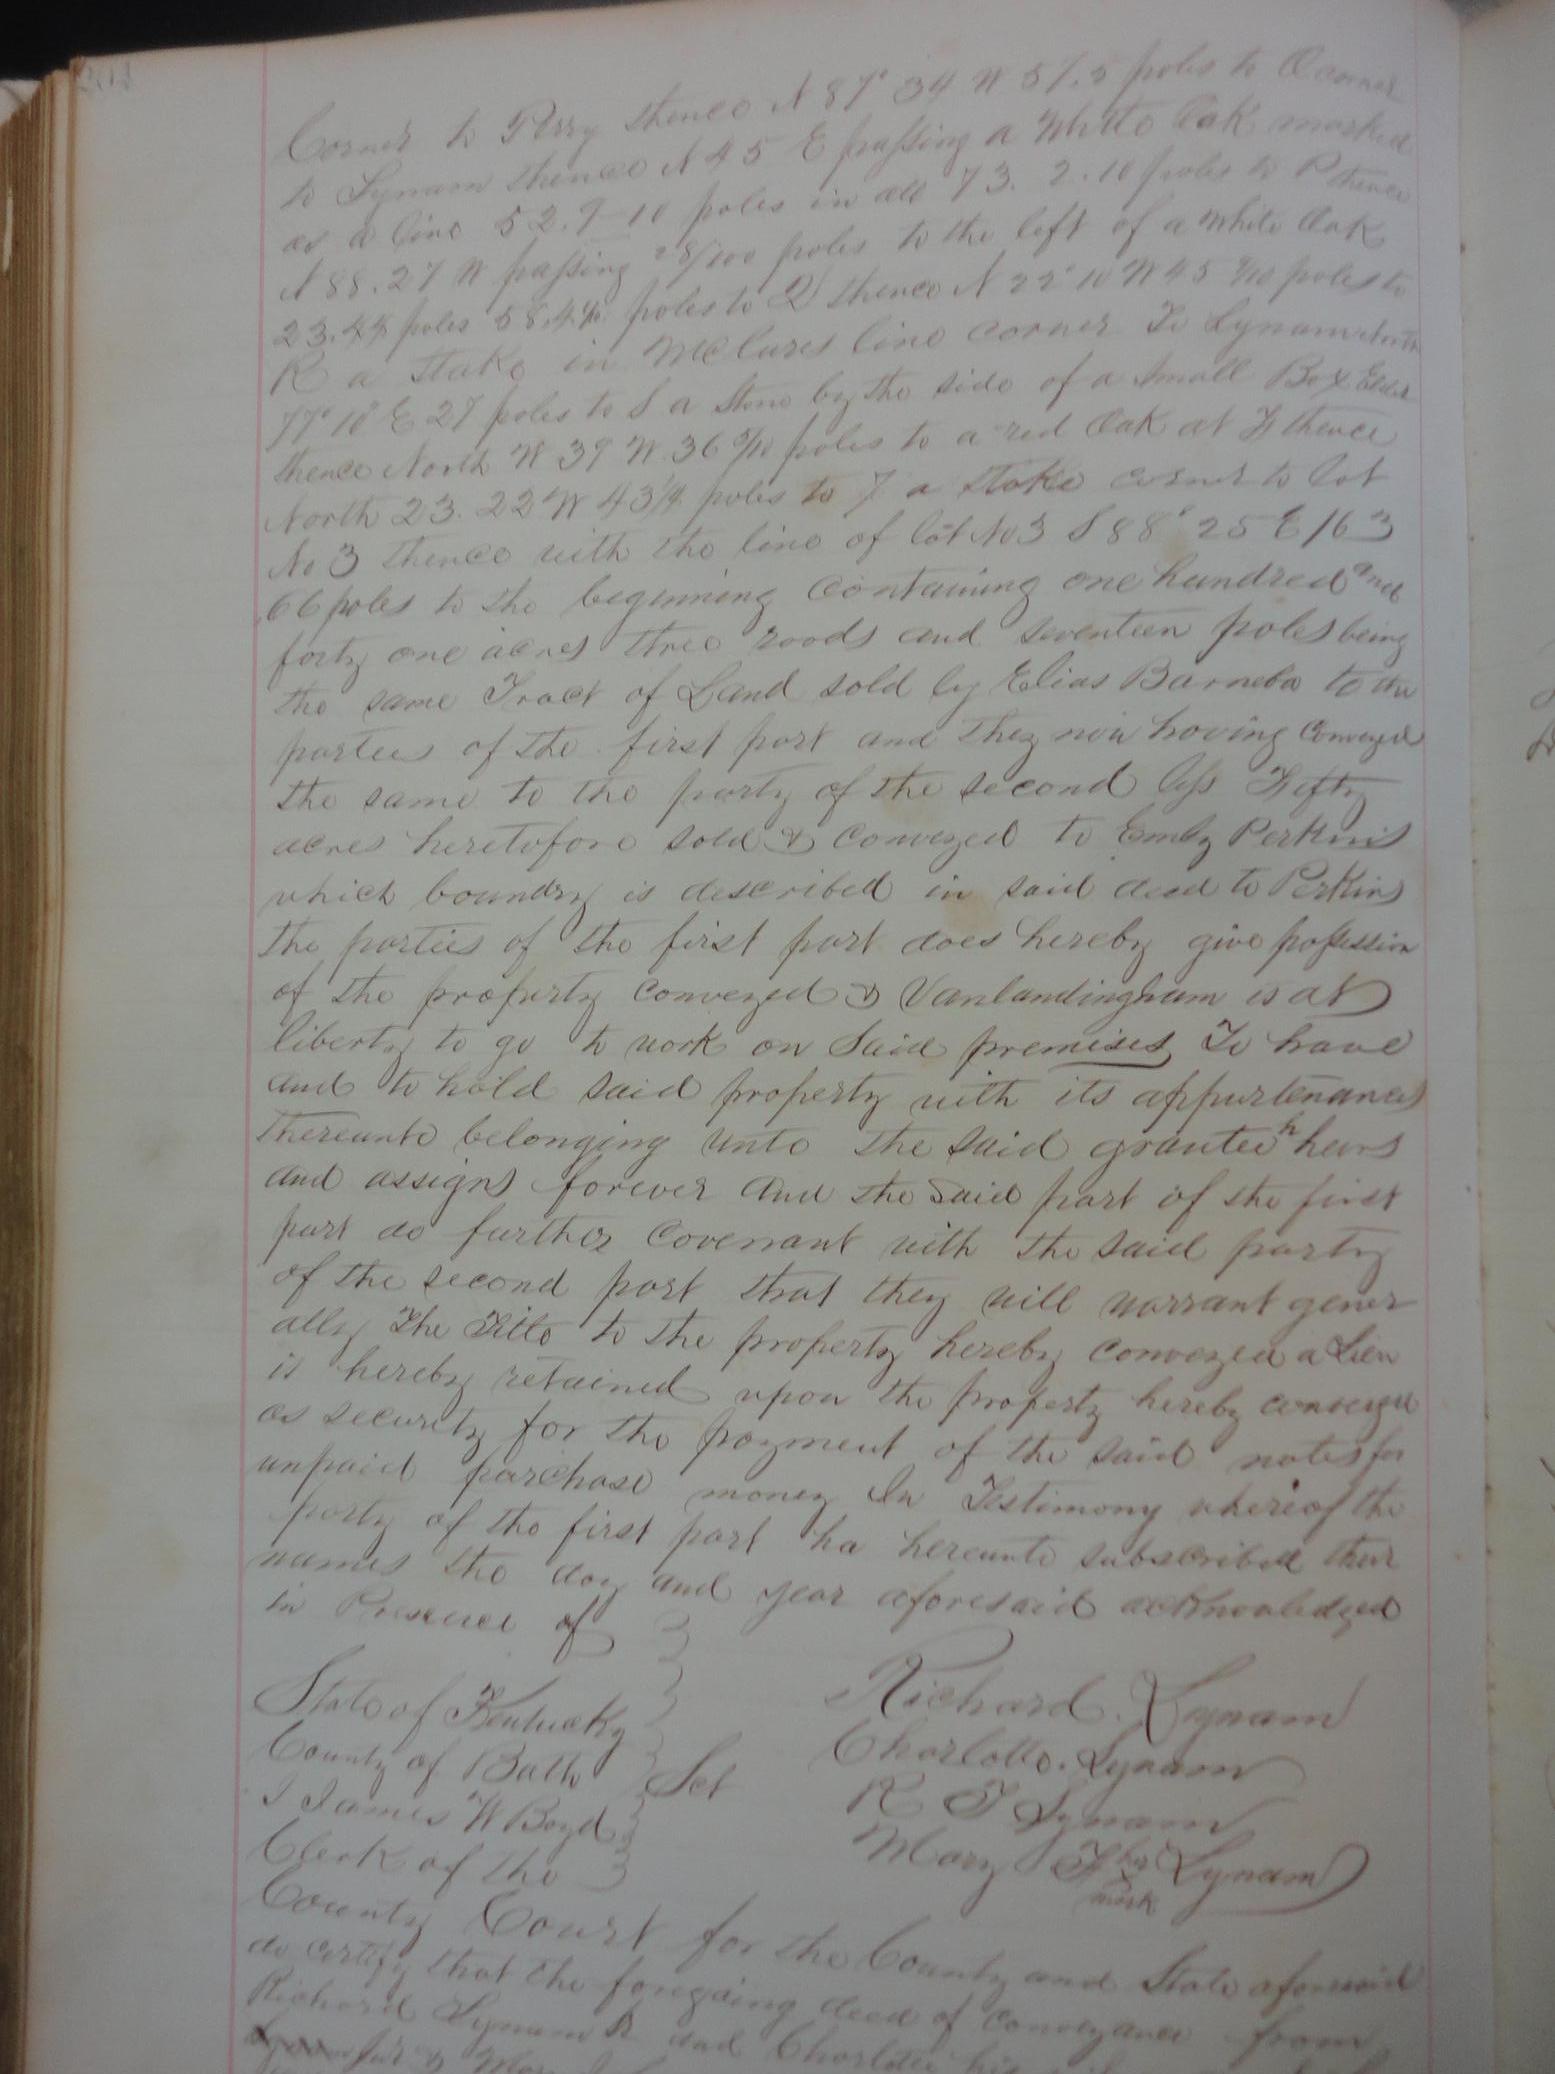 Corner to Perry thence N 87° 34 W 57.5 poles to O corner
to Lynam thence N 45 E passing a White Oak marked
as a line 52.9-10 poles in all 73. 2.10 poles to P thence
N 88.27 W passing 28/100 poles to the left of a White Oak
23.44 poles 58.4/10 poles to Q thence N 22° 10 W 45 poles to
R a Stake in McClures line corner To Lynam North
77° 10 E 27 poles to S a Stone by the side of a Small Box Elder
thence North W 39 W. 36 poles to a red Oak at thence
North 23. 22 W 43 1/4 poles to 7 a Stake corner to lot
No 3 thence with the line of lot No 3 S 88° 25 E 163
66 poles to the beginning Containing one hundred and
forty one acres three roods and seventeen poles being
the same Tract of Land sold by Elias Barnebo to the
parties of the first part and they now having Conveyed
the same to the party of the second less Fifty
acres heretofore sold & Conveyed to Emly Perkins
which boundry is described in said deed to Perkins
the parties of the first part does hereby give possession
of the property conveyed & Vanlandingham is at
liberty to go to work on Said premises To have
and to hold said property with its appurtenances
thereunto belonging unto the said grantee h heirs
and assigns forever And the Said part of the first
part do further Covenant with the said party
of the second part that they will warrant gener
ally The Title to the property hereby conveyed a Lien
is hereby retained upon the property hereby conveyed
as security for the payment of the said notes for
unpaid purchase money In Testimony whereof the
party of the first part ha hereunto subscribed their
names the day and year aforesaid acknowledged
in Presence of
Richard. Lynam
Charlotte. Lynam
R T Lynam
Mary F her Lynam
mark
State of Kentucky
County of Bath Sct
I James W Boyd
Clerk of the
County Court for the County and State aforesaid
do certify that the foregoing deed of conveyance from
Richard Lynam Sr and Charlotte his wife
Jur &